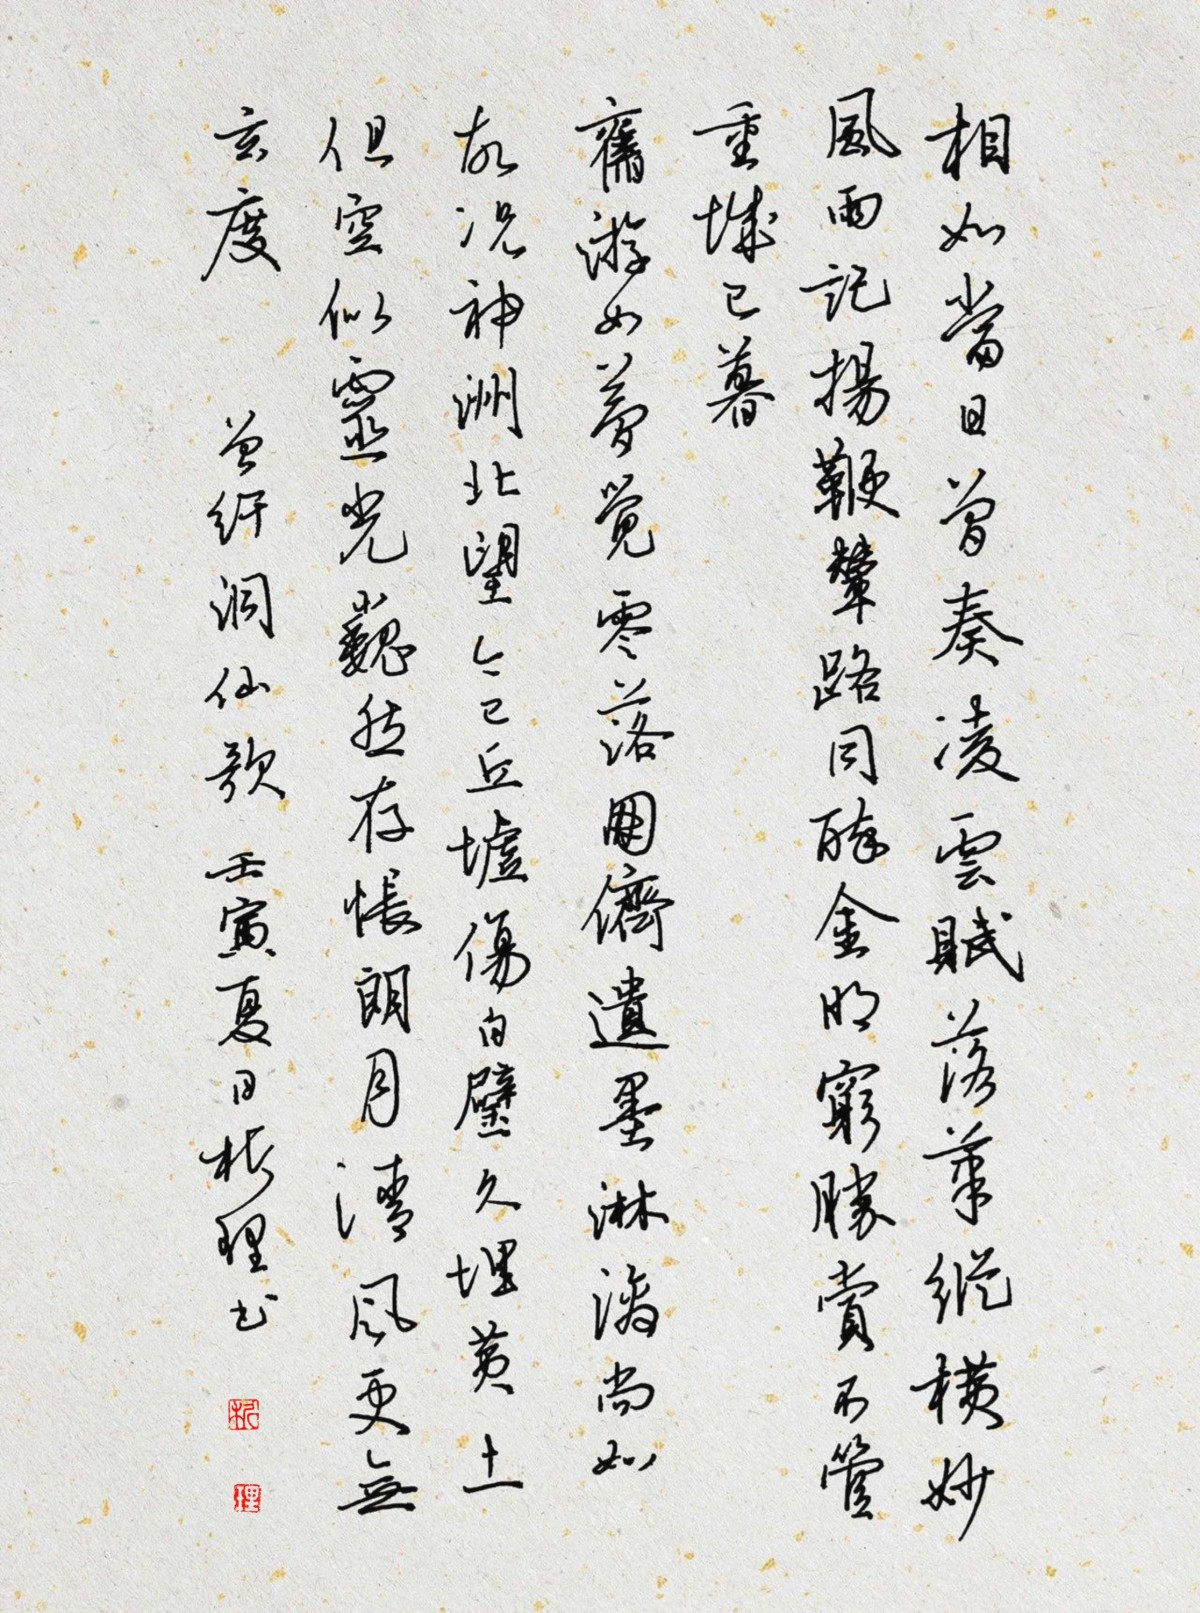 相如當日曾奏凌雲賦落筆縱橫妙
風雨記揚鞭輦路同醉金明窮勝賞不管
重城已暮
舊游如夢覺零落朋儕遺墨淋漓尚如
故況神洲北望今已丘墟傷白璧久埋黃土
但空似靈光巍然存悵朗月清風更無
玄度 曾紆洞仙歌 壬寅夏日彬理书
理